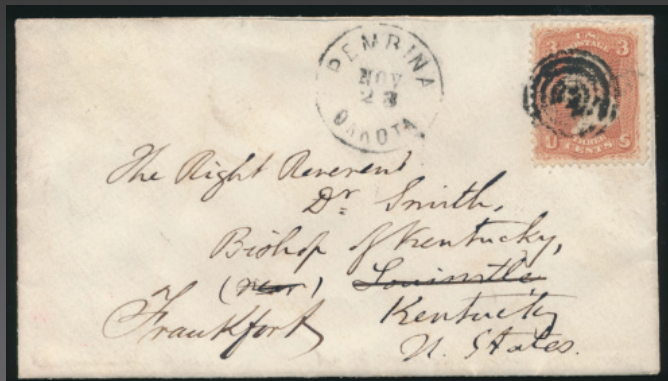 PEMBINA
NOV
23
DAKOTA
3 U.S. 3
POSTAGE
THREE
U CENTS S
The Right Reverend
Dr Smith,
Bishop of Kentucky,
(near) Louisville
Frankfort Kentucky
U. States.